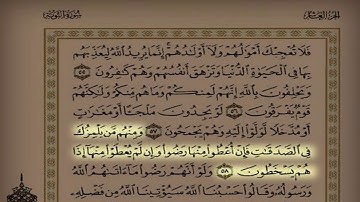 الجزء العاشر
سورة التوبة
فَلَا تُعْجِبْكَ أَمْوَٰلُهُمْ وَلَآ أَوْلَـٰدُهُمْ إِنَّمَا يُرِيدُ ٱللَّهُ لِيُعَذِّبَهُم
بِهَا فِى ٱلْحَيَوٰةِ ٱلدُّنْيَا وَتَزْهَقَ أَنفُسُهُمْ وَهُمْ كَـٰفِرُونَ ٥٥
وَيَحْلِفُونَ بِٱللَّهِ إِنَّهُمْ لَمِنكُمْ وَمَا هُم مِّنكُمْ وَلَـٰكِنَّهُمْ
قَوْمٌ يَفْرَقُونَ ٥٦ لَوْ يَجِدُونَ مَلْجَـًٔا أَوْ مَغَـٰرَٰتٍ
أَوْ مُدَّخَلًا لَّوَلَّوْا۟ إِلَيْهِ وَهُمْ يَجْمَحُونَ ٥٧ وَمِنْهُم مَّن يَلْمِزُكَ
فِى ٱلصَّدَقَـٰتِ فَإِنْ أُعْطُوا۟ مِنْهَا رَضُوا۟ وَإِن لَّمْ يُعْطَوْا۟ مِنْهَآ إِذَا
هُمْ يَسْخَطُونَ ٥٨ وَلَوْ أَنَّهُمْ رَضُوا۟ مَآ ءَاتَىٰهُمُ ٱللَّهُ
وَرَسُولُهُۥ وَقَالُوا۟ حَسْبُنَا ٱللَّهُ سَيُؤْتِينَا ٱللَّهُ مِن فَضْلِهِۦ